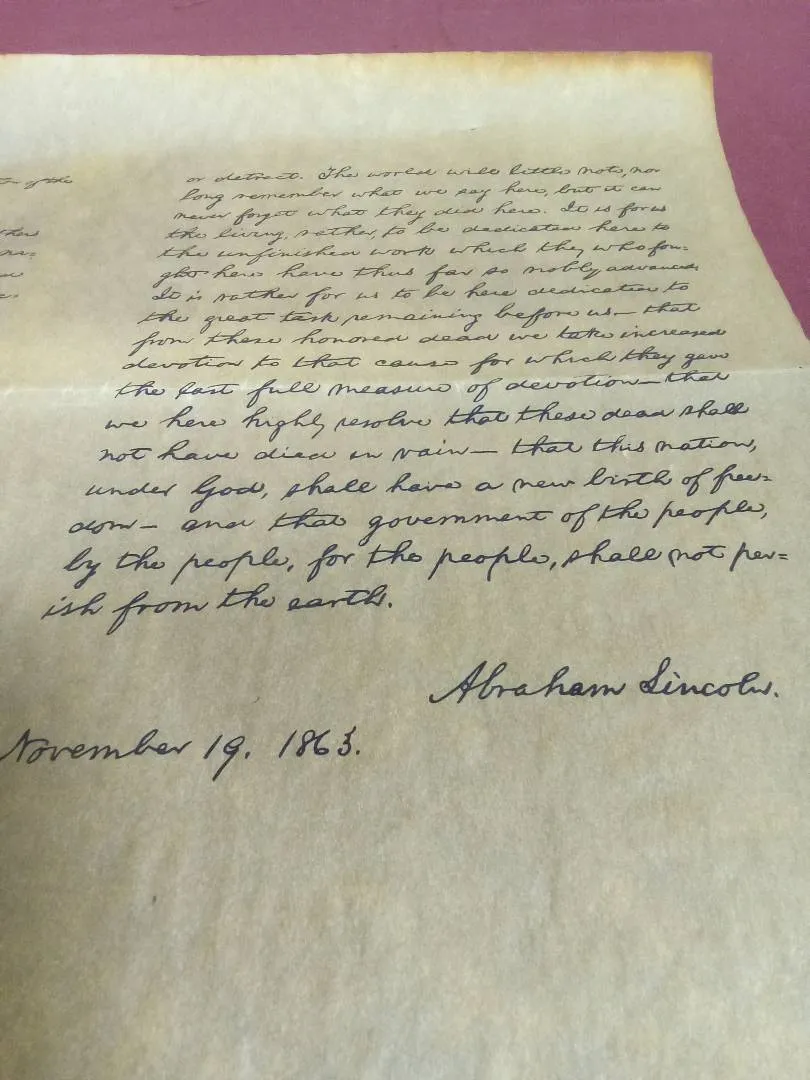 of the
or detract. The world will little note, nor
long remember what we say here, but it can
never forget what they did here. It is for us
the living, rather, to be dedicated here to
the unfinished work which they who fou=
ght here have thus far so nobly advanced.
It is rather for us to be here dedicated to
the great task remaining before us— that
from these honored dead we take increased
devotion to that cause for which they gave
the last full measure of devotion— that
we here highly resolve that these dead shall
not have died in vain— that this nation,
under God, shall have a new birth of free=
dom— and that government of the people,
by the people, for the people, shall not per=
ish from the earth.
Abraham Lincoln.
November 19. 1863.